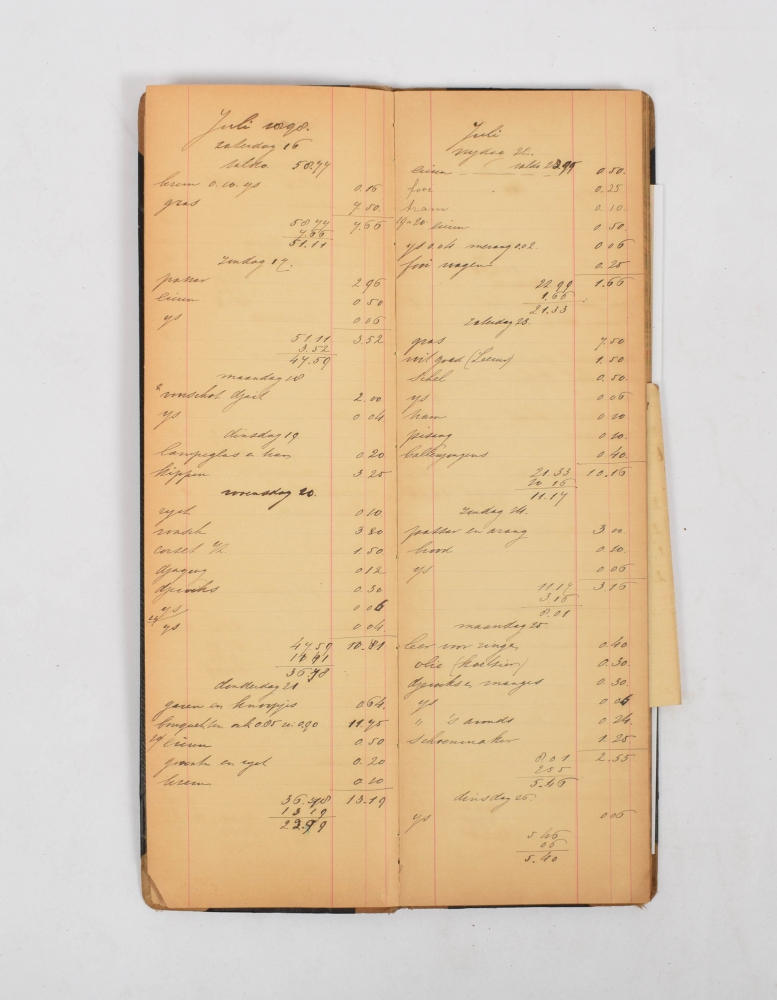 Juli 1898.
zaterdag 16
saldo 58.77
brem 0.10. ys 0.16
gras 7.50.
58.77 7.66
7.66
51.11
zondag 17.
passar 2.96
0.50
ys 0.06
51.11 3.52
3.52
47.59
maandag 18
2.00
ys 0.04
dinsdag 19.
lampeglas en 0.20
kippen 3.25
woensdag 20.
0.10
3.80
corset 1.50
djagung 0.12
djeroeks 0.30
ys 0.06
ys 0.04
47.59 10.81
36.78
donderdag 21
garen en knoopjes 0.64.
0.85 en 0.90 11.75
0.50
groente en 0.20
brem 0.10
36.78 13.19
13.19
Juli
vrydag 22.
saldo 0.50.
fooi 0.25
tram 0.10.
19 en 20 0.50
ys 0.04 0.02. 0.06
fooi wagen 0.25
22.99 1.66
1.66
21.33
zaterdag 23.
gras 7.50
1.50
sikel 0.50.
ys 0.06
ham 0.10
pisang 0.10.
0.40
21.33 10.16
10.16
11.17
zondag 24.
passar en arang 3.00
brood 0.10.
ys 0.06
11.17 3.16
3.16
8.01
maandag 25
leer voor 0.40
olie (koetsier) 0.30.
djeroeks en manges 0.30.
ys 0.06
" 's avonds 0.24.
schoenmaker 1.25
8.01 2.55
2.55
5.46
dinsdag 26.
ys 0.06
5.46
06
5.40